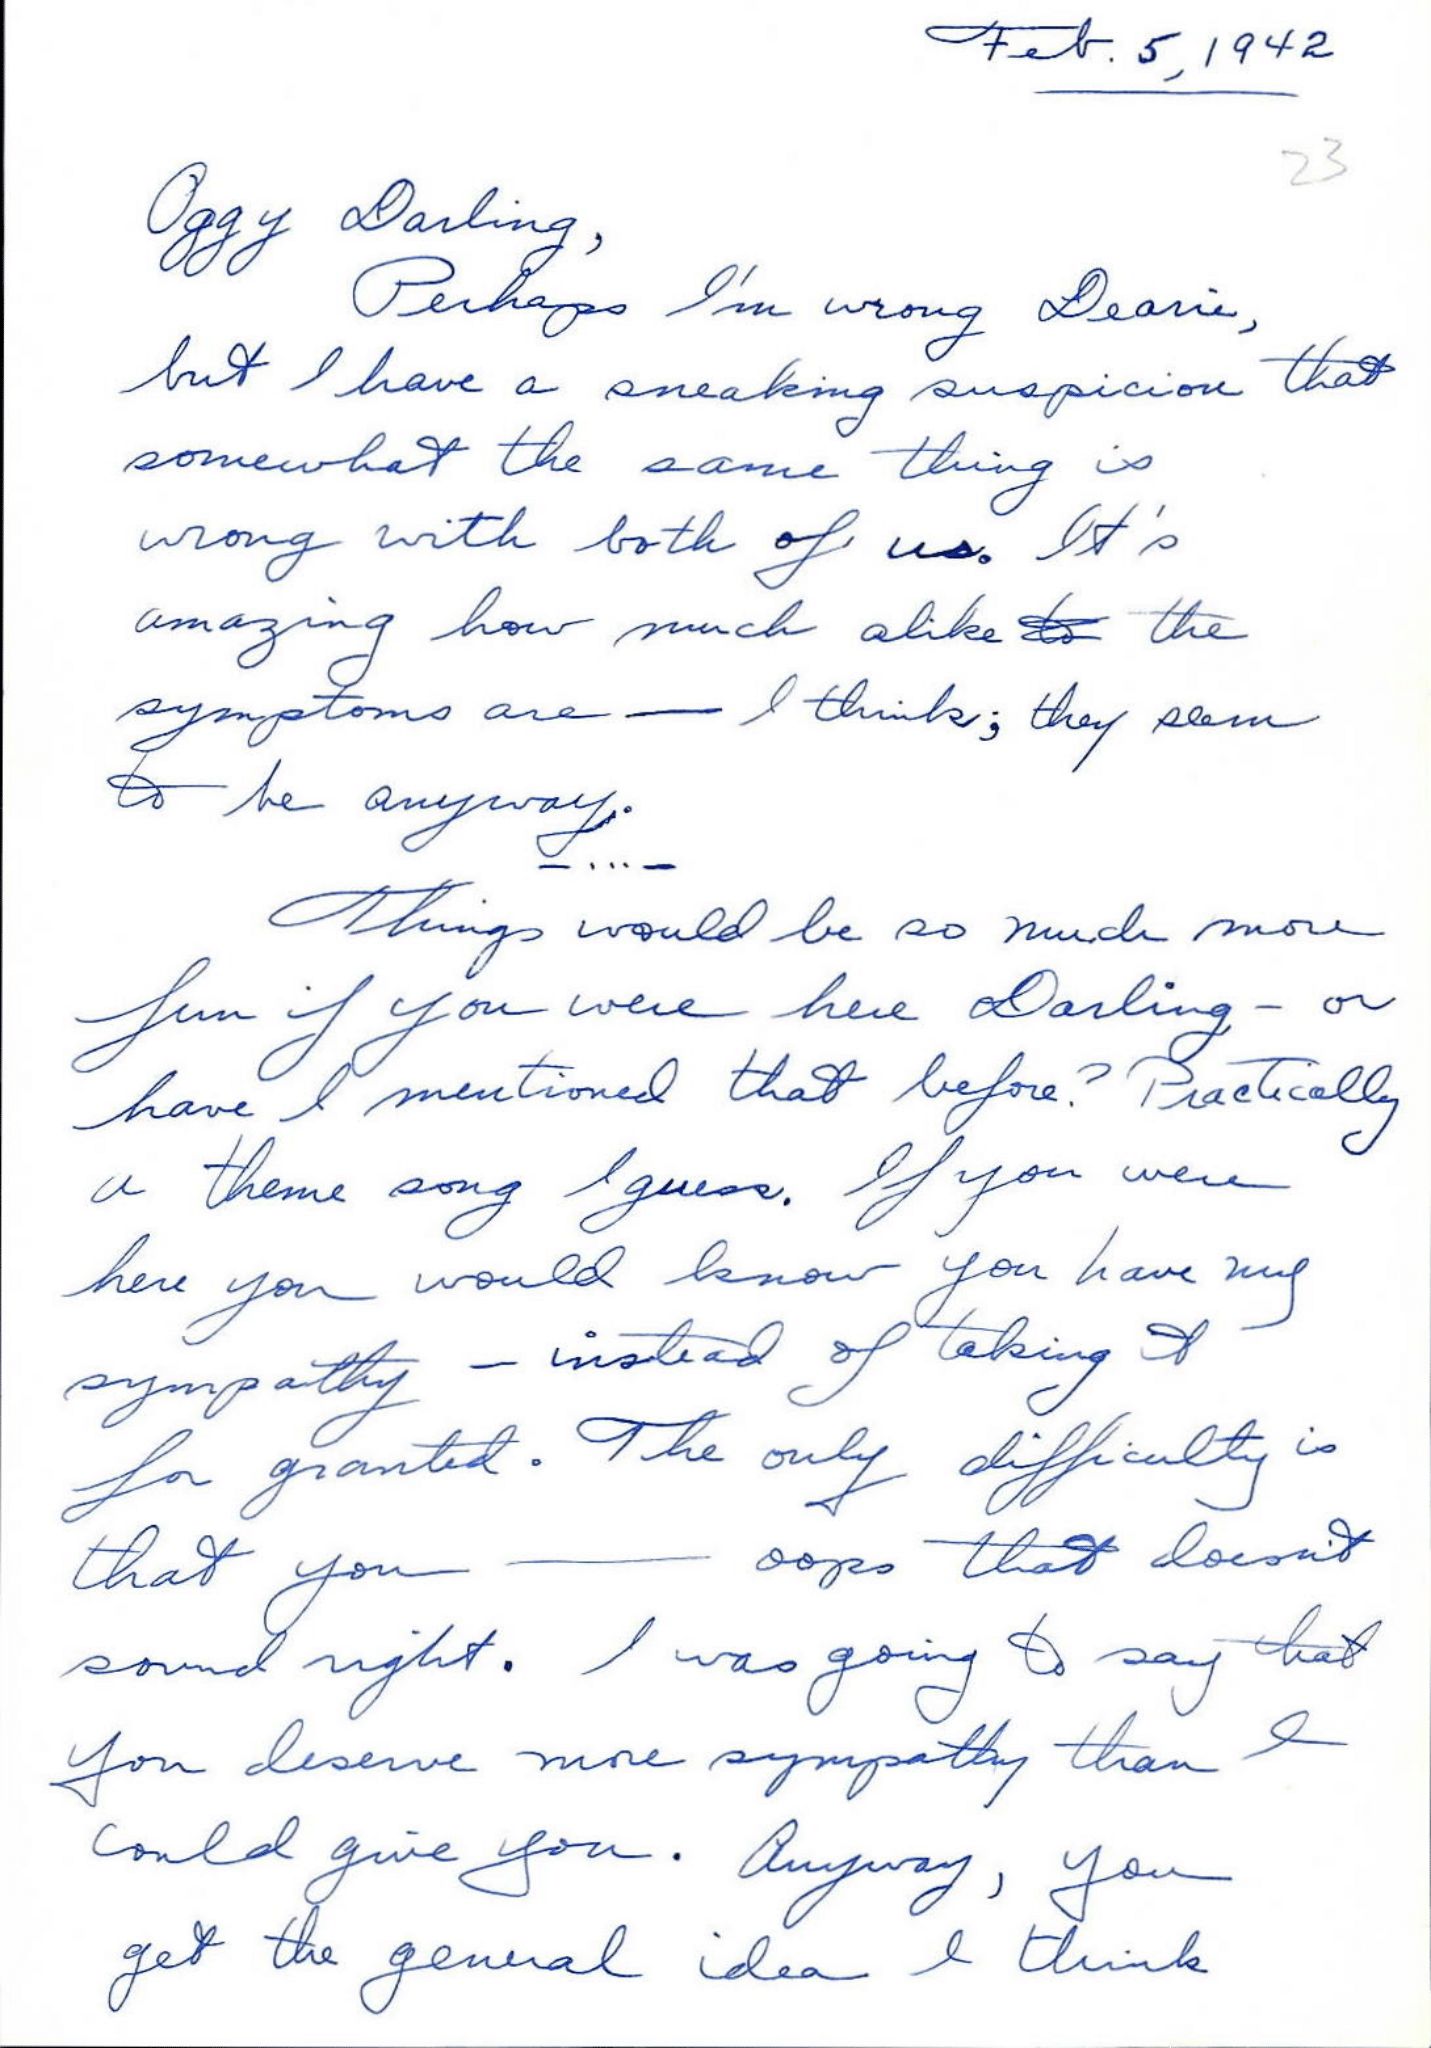 Feb. 5, 1942
23
Oggy Darling,
Perhaps I'm wrong Dearie,
but I have a sneaking suspicion that
somewhat the same thing is
wrong with both of us. It's
amazing how much alike to the
symptoms are — I think; they seem
to be anyway.
– ... –
Things would be so much more
fun if you were here Darling – or
have I mentioned that before? Practically
a theme song I guess. If you were
here you would know you have my
sympathy – instead of taking it
for granted. The only difficulty is
that you —— oops that doesn't
sound right. I was going to say that
you deserve more sympathy than I
could give you. Anyway, you
get the general idea I think